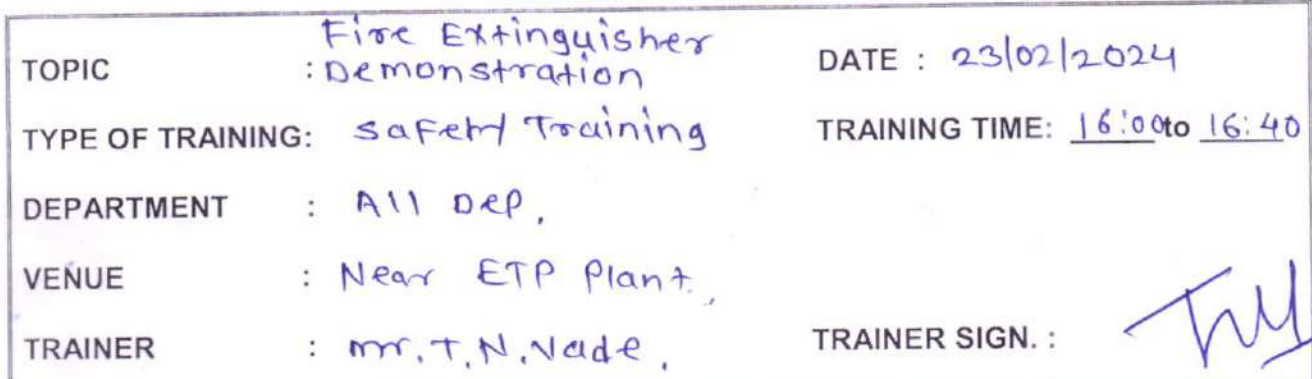 Fire Extinguisher
TOPIC : Demonstration DATE : 23/02/2024
TYPE OF TRAINING: Safety Training TRAINING TIME: 16:00 to 16:40
DEPARTMENT : All Dep.
VENUE : Near ETP Plant.
TRAINER : mr. T. N. Vade. TRAINER SIGN. :